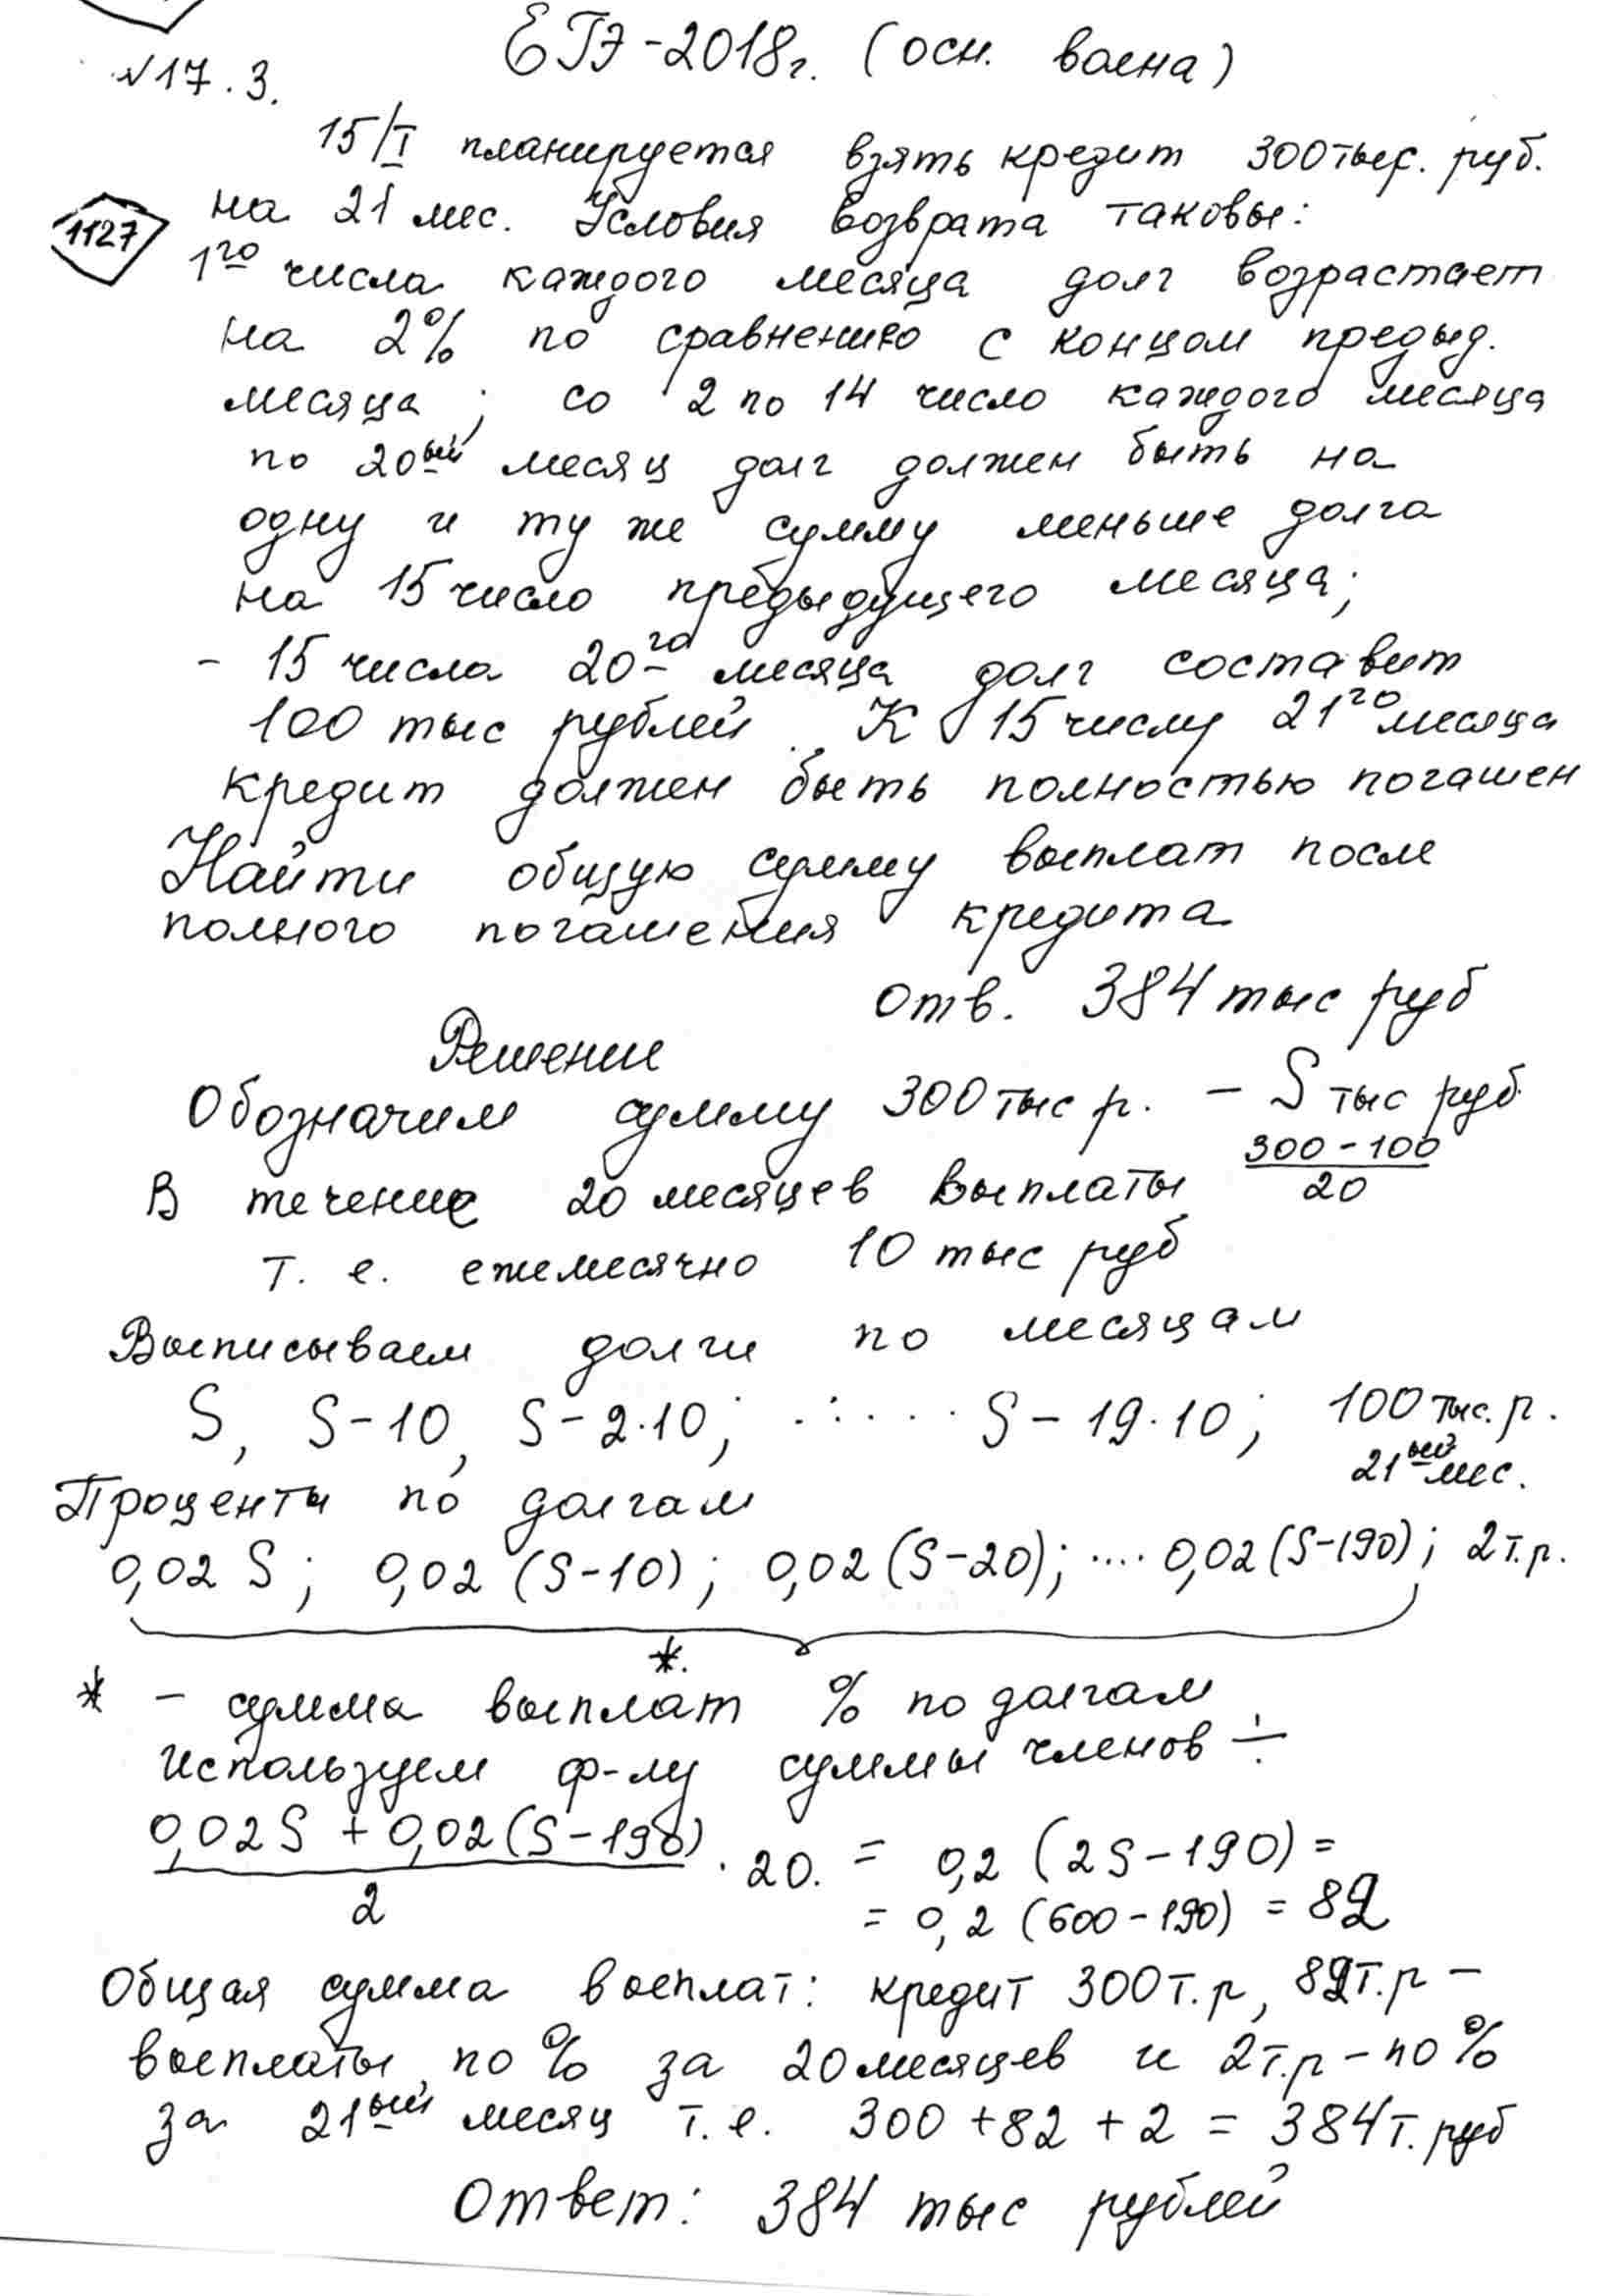 ЕГЭ-2018г. (осн. волна)
№17.3.
15/I планируется взять кредит 300тыс. руб.
на 21 мес. Условия возврата таковы:
1127
1го числа каждого месяца долг возрастает
на 2% по сравнению с концом предыд.
месяца; со 2 по 14 число каждого месяца
по 20ый месяц долг должен быть на
одну и ту же сумму меньше долга
на 15 число предыдущего месяца;
- 15 числа 20го месяца долг составит
100 тыс рублей. К 15 числу 21го месяца
кредит должен быть полностью погашен
Найти общую сумму выплат после
полного погашения кредита
Отв. 384 тыс руб
Решение
Обозначим сумму 300тыс р. – S тыс руб.
В течение 20 месяцев выплаты (300-100)/20
т. е. ежемесячно 10 тыс руб
Выписываем долги по месяцам
S, S-10, S-2·10; ...... S-19·10; 100 тыс. р.
21ый мес.
Проценты по долгам
0,02 S; 0,02 (S-10); 0,02 (S-20); .... 0,02 (S-190); 2т.р.
*.
* - сумма выплат % по долгам
используем ф-лу суммы членов ÷
(0,02S + 0,02(S-190))/2 · 20. = 0,2 (2S-190) =
= 0,2 (600-190) = 82
Общая сумма выплат: кредит 300т.р, 82т.р –
выплаты по % за 20месяцев и 2т.р - по %
за 21ый месяц т.е. 300 +82 + 2 = 384т. руб
Ответ: 384 тыс рублей